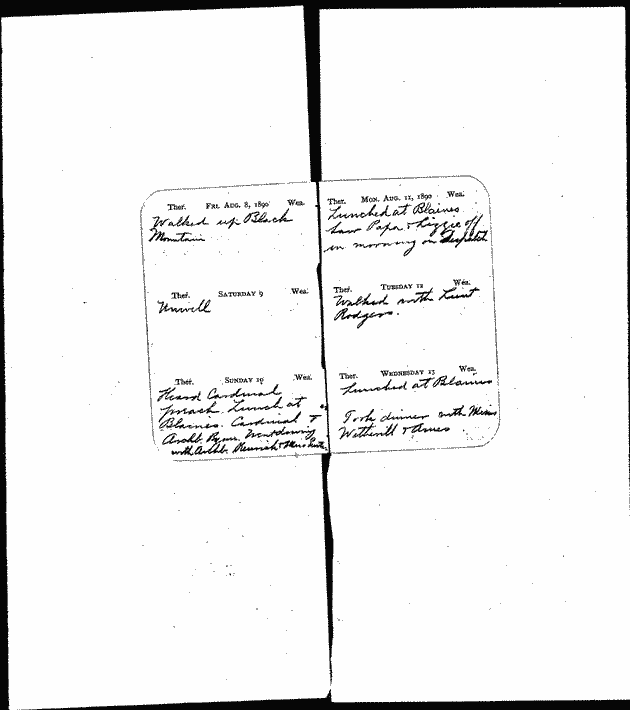 Ther. FRI. AUG. 8, 1890 Wea.
Walked up Black
Mountain
Ther. SATURDAY 9 Wea.
Unwell
Ther. SUNDAY 10 Wea.
Heard Cardinal
preach. Lunch at
Blaines. Cardinal &
Archb. Ryan. Went driving
with Archb. &
Ther. MON. AUG. 11, 1890 Wea.
Lunched at Blaines
Saw Papa & Lizzie off
in morning on Despatch
Ther. TUESDAY 12 Wea.
Walked with Lieut
Rodgers.
Ther. WEDNESDAY 13 Wea.
Lunched at Blaines
Took dinner with Misses
Wetherill & Ames